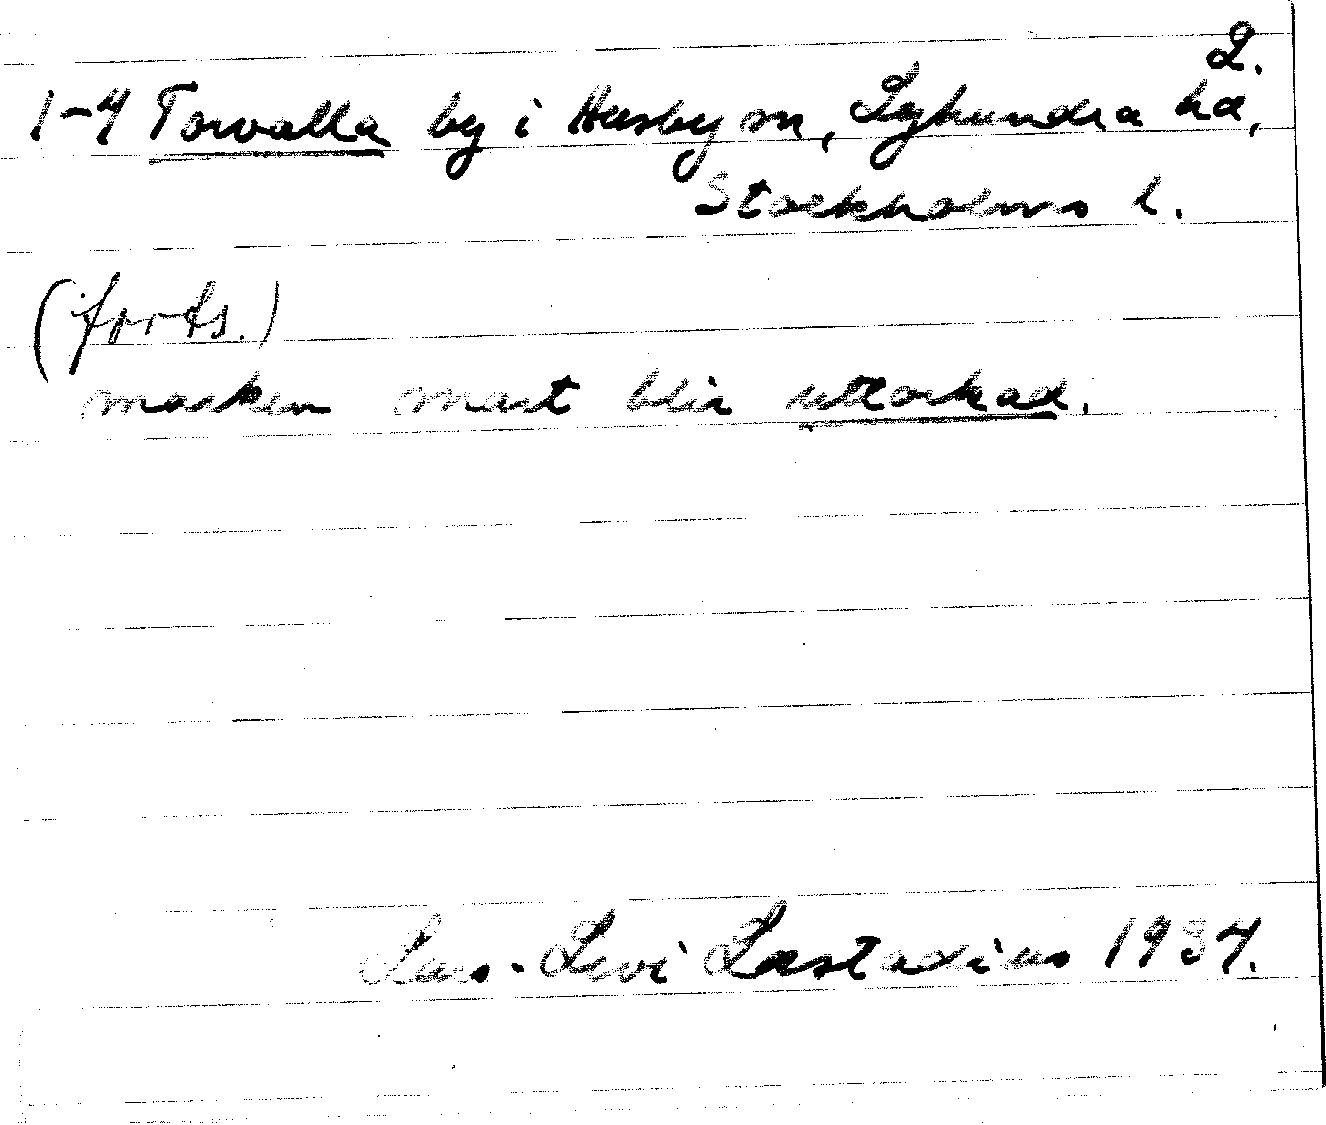 2.
1-4 Torvalla by i Husby sn, Lyhundra hd,
Stockholms l.
(forts.)
marken snart blir uttorkad.
Lars-Levi Læstadius 1937.